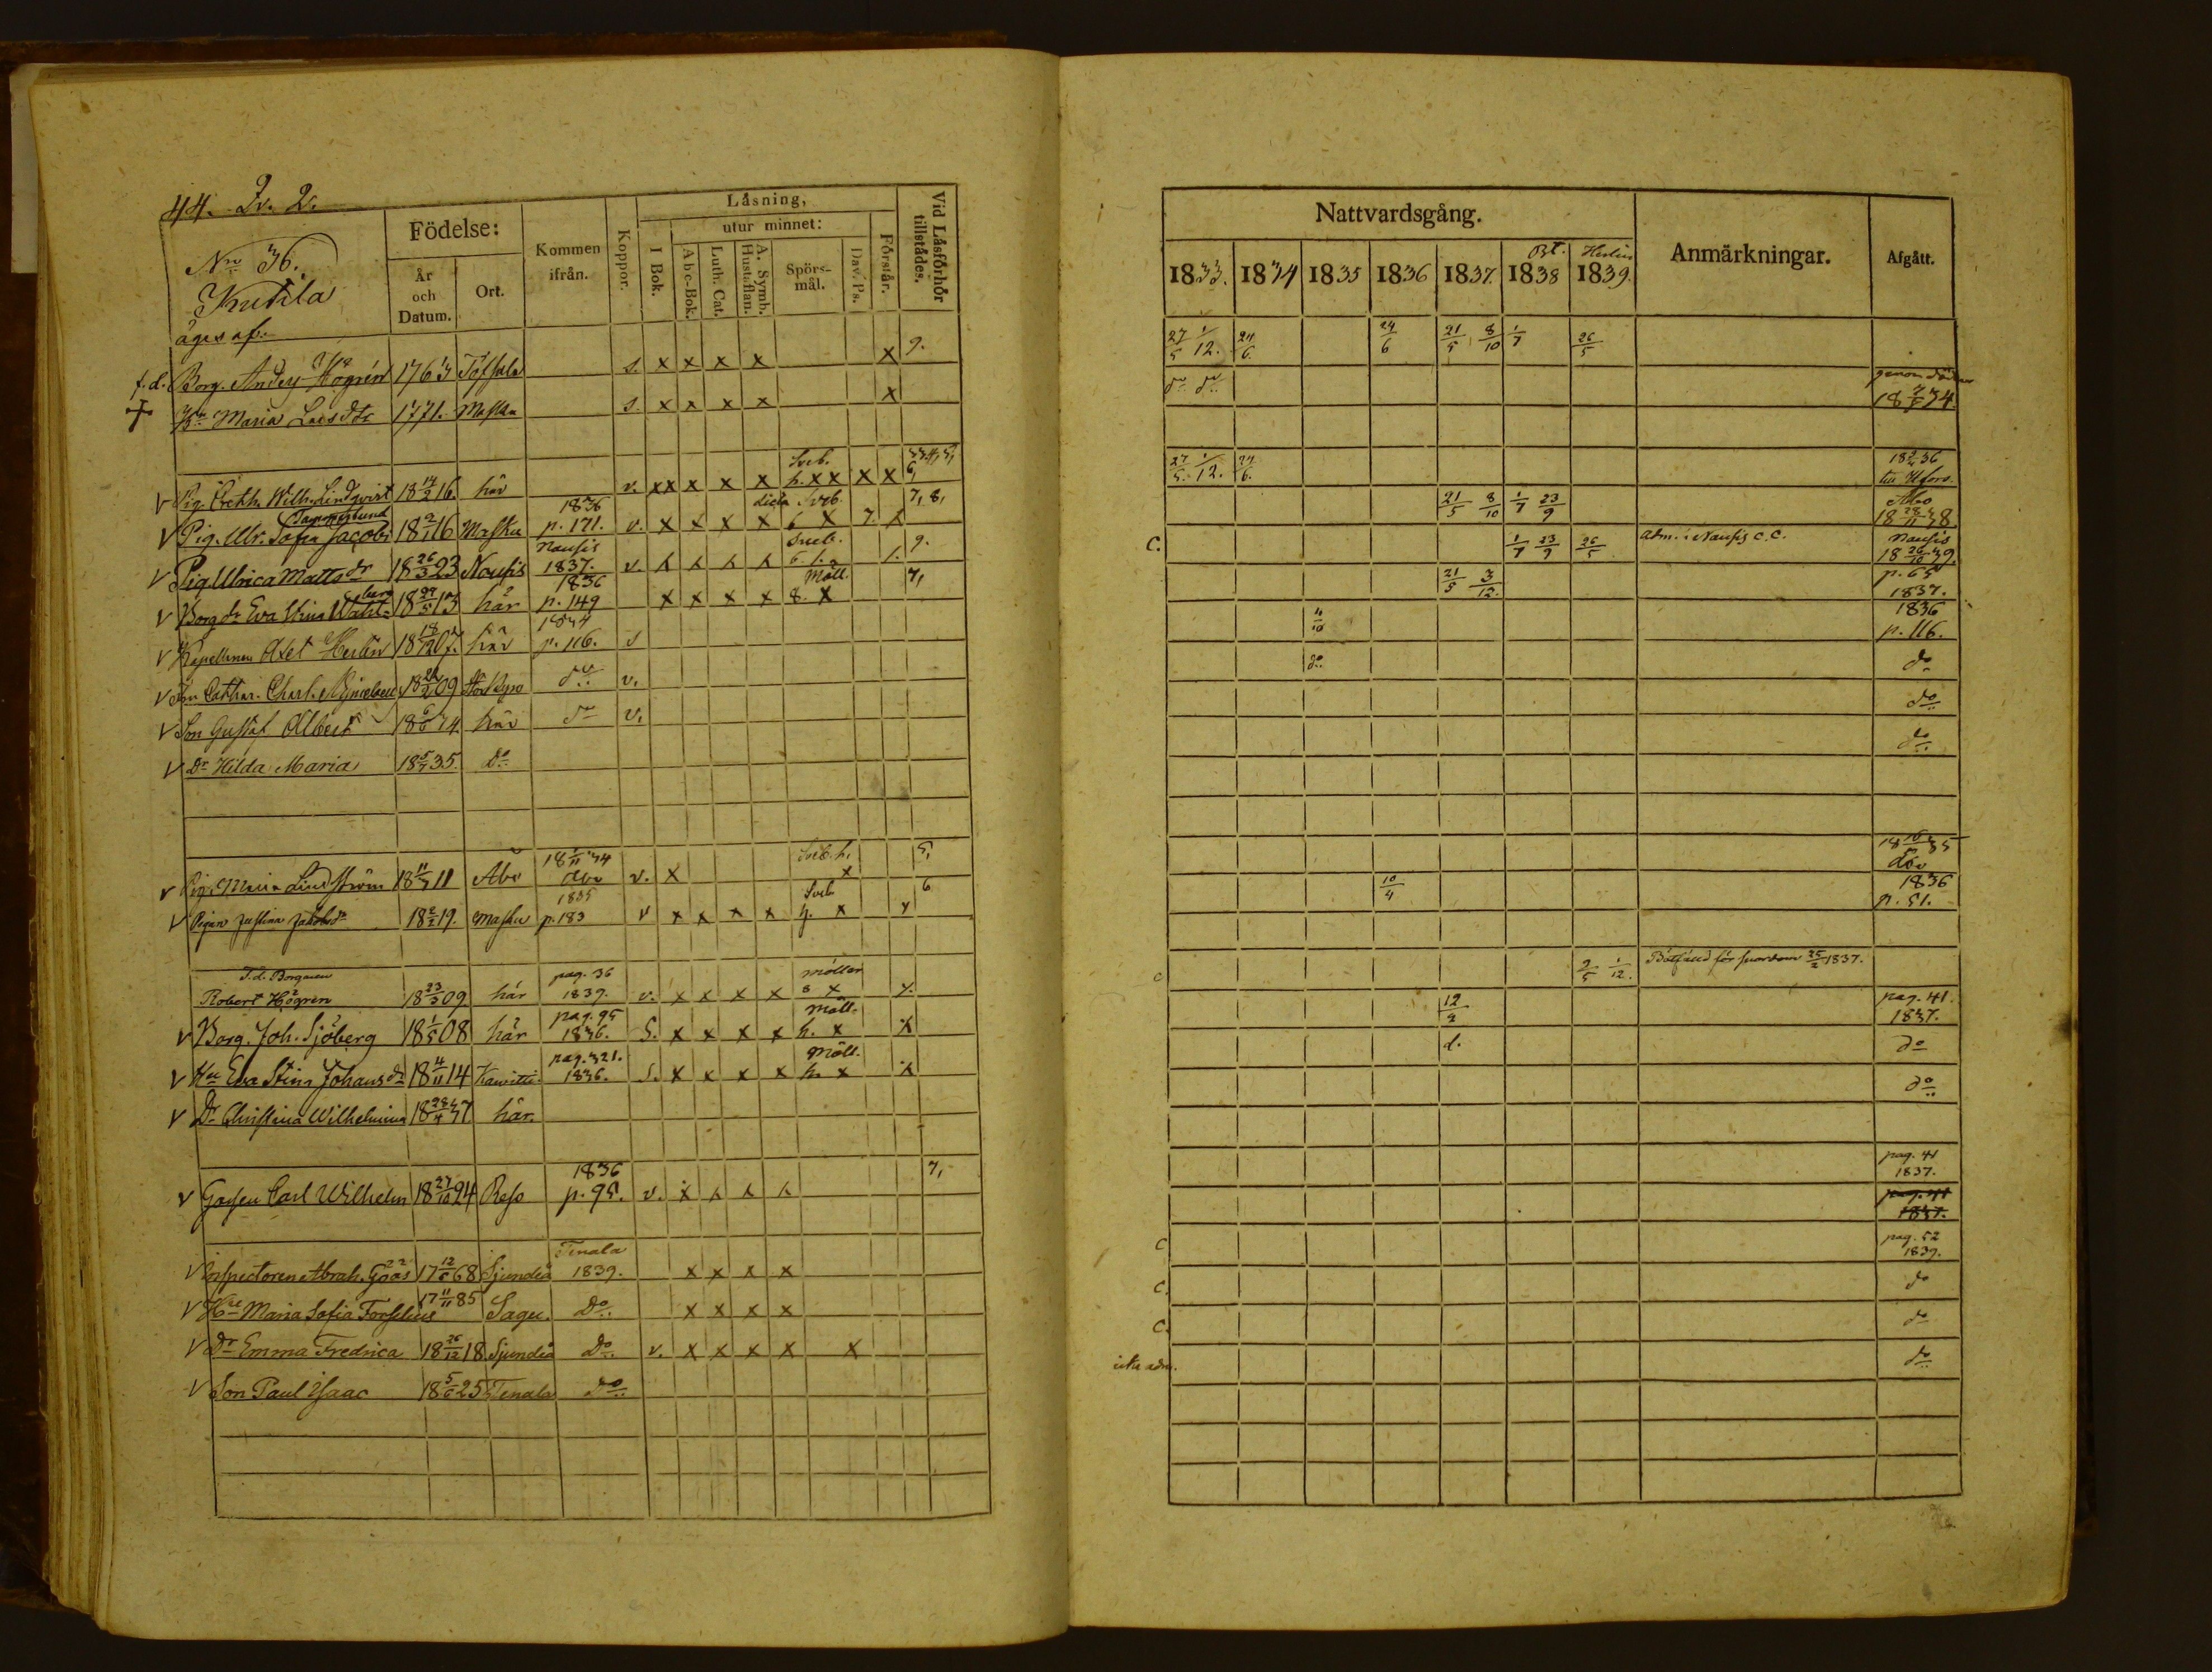 44. Qv. 2.
Nro 36.
Kutila
äges af.
Födelse:
År och Datum.
Ort.
Kommen ifrån.
Koppor.
Läsning,
I Bok.
utur minnet:
Abc-Bok.
Luth. Cat.
A. Symb. Hustaflan.
Spörs-mål.
Dav. Ps.
Förstår.
Vid Läsförhör tillstädes.
f.d. Borg. Anders Högrén 1763 Töfsala s. x x x x x 9.
Hu Maria Larsdtr 1771. Masku s. x x x x x
Pig. Wilh. Lindqvist 18 14/2 16. här v. xx x x x h. xx x x
Tammerlund
Pig. Ulr. Sofia Jacobs 18 16 Masku 1836 p. 171. v. x x x x 6 x 7. x 7, 8,
Pig Ulrica Matts dr 18 26/3 23 Nousis Nousis 1837. v. 9.
Borg dr Eva Stina 18 29/5 13 här 1836 p. 149 x x x x Möll. 8. x 7,
Kapellanen Axel Herlin 18 18/12 07. här 1834 p. 116. s
Cathar. Charl. 18 09 do v.
Son Gustaf Albert 18 6/6 34. här do v.
Dr Hilda Maria 18 5/7 35. do
Pig. Maria Lindström 18 11/3 11 Åbo 18 1/11 34 Åbo v. x Sveb. h. x 5,
Pigan Justina Jakobsdr 18 19. Masku 1835 p. 183 v x x x x Sveb h. x 6
F.d. Borgaren
Robert Högrén 18 23/3 09 här pag. 36 1839. v. x x x x möller 8 x
Borg. Joh. Sjöberg 18 1/5 08 här pag. 95 1836. S. x x x x Möll. h. x
Hu Eva Stina Johansdr 18 4/11 14 pag. 321. 1836. S. x x x x Möll. h. x
Dr Christina Wilhelmina 18 28/4 37 här.
Gossen Carl Wilhelm 18 27/10 24 Reso 1836 p. 95. v. 7,
Inspectoren Abrah. Gåås 17 12/6 68 Sjundeå Tenala 1839. x x x x
Hru Maria Sofia Forselius 17 11/11 85 Sagu. Do x x x x
Dr Emma Fredrica 18 26/12 18 Sjundeå Do v. x x x x x
Son Paul Isaac 18 5/6 25 Tenala do
Nattvardsgång.
Anmärkningar.
Afgått.
1833. 1834 1835 1836 1837. 1838 1839.
Herlin
27/5 1/12. 24/6. 24/6 21/5 8/10 1/7 26/5
do do 18 34.
27/5 1/12. 24/6. 18 36 till Hfors.
21/5 8/10 1/7 23/9 Åbo 18 28/11 38.
C. 1/7 23/9 26/5 Adm. i Nousis C. C. Nousis 18 26/10 39.
21/5 3/12. p. 65 1837.
11/10 1836 p. 116.
do do
do
do
18 35 Åbo
10/4 1836 p. 51.
c 2/5 1/12. 25/2 1837.
12/2 pag. 41. 1837.
d. do
do
pag. 41 1837.
pag. 41 1837.
C pag. 52 1839.
C. do
C. do
icke adm. do